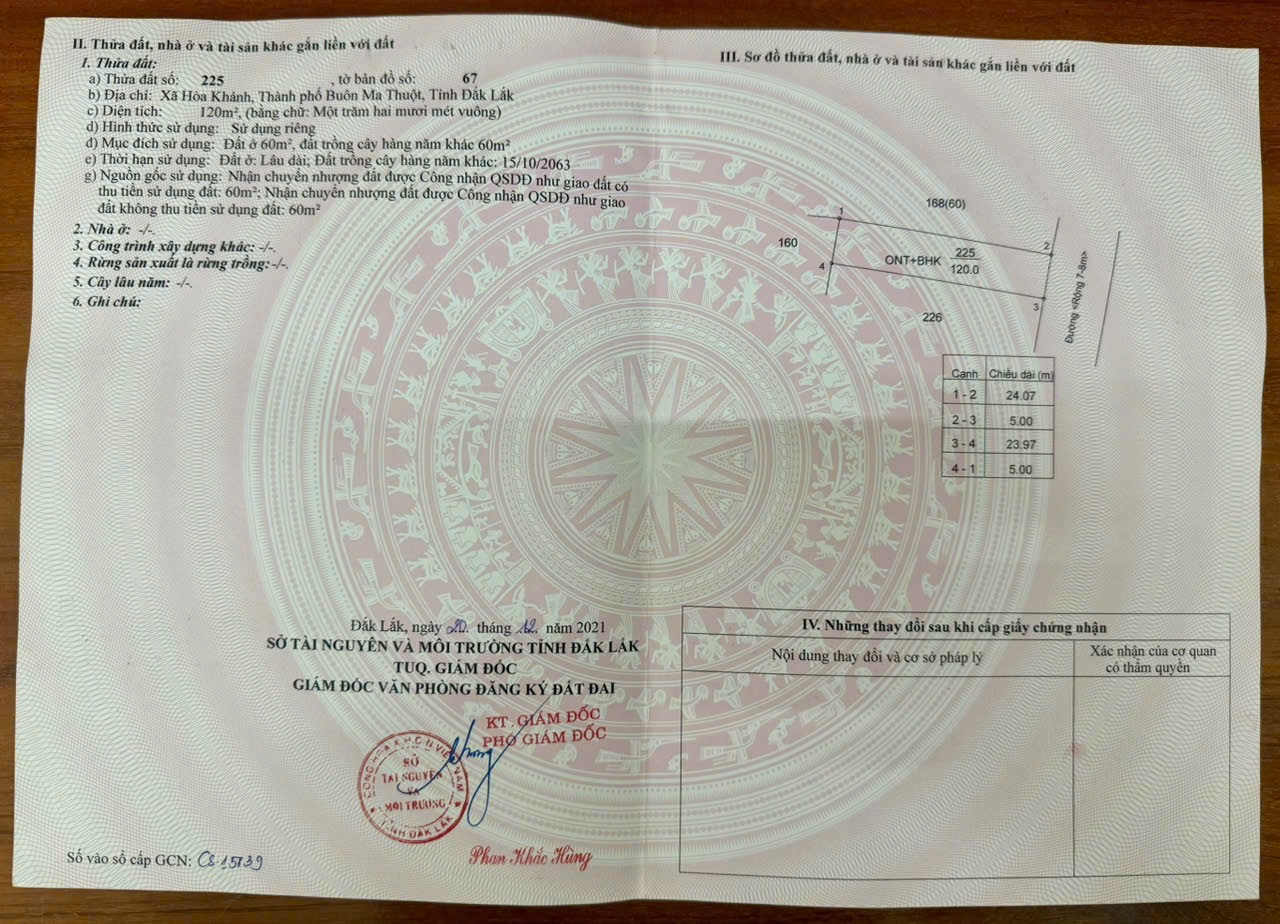 II. Thửa đất, nhà ở và tài sản khác gắn liền với đất
1. Thửa đất:
a) Thửa đất số: 225 , tờ bản đồ số: 67
b) Địa chỉ: Xã Hòa Khánh, Thành phố Buôn Ma Thuột, Tỉnh Đắk Lắk
c) Diện tích: 120m², (bằng chữ: Một trăm hai mươi mét vuông)
d) Hình thức sử dụng: Sử dụng riêng
đ) Mục đích sử dụng: Đất ở 60m², đất trồng cây hàng năm khác 60m²
e) Thời hạn sử dụng: Đất ở: Lâu dài; Đất trồng cây hàng năm khác: 15/10/2063
g) Nguồn gốc sử dụng: Nhận chuyển nhượng đất được Công nhận QSDĐ như giao đất có
thu tiền sử dụng đất: 60m²; Nhận chuyển nhượng đất được Công nhận QSDĐ như giao
đất không thu tiền sử dụng đất: 60m²
2. Nhà ở: -/-.
3. Công trình xây dựng khác: -/-.
4. Rừng sản xuất là rừng trồng:-/-.
5. Cây lâu năm: -/-.
6. Ghi chú:
Đắk Lắk, ngày 20. tháng .12. năm 2021
SỞ TÀI NGUYÊN VÀ MÔI TRƯỜNG TỈNH ĐẮK LẮK
TUQ. GIÁM ĐỐC
GIÁM ĐỐC VĂN PHÒNG ĐĂNG KÝ ĐẤT ĐAI
KT. GIÁM ĐỐC
PHÓ GIÁM ĐỐC
CỘNG HÒA X.H.C.N VIỆT NAM
SỞ
TÀI NGUYÊN
VÀ
MÔI TRƯỜNG
TỈNH ĐẮK LẮK
Phan Khắc Hùng
Số vào sổ cấp GCN: CS 15739
III. Sơ đồ thửa đất, nhà ở và tài sản khác gắn liền với đất
168(60)
1
160
2
ONT+BHK 225
120.0
4
3
226
Đường <Rộng 7-8m>
Cạnh Chiều dài (m)
1 - 2 24.07
2 - 3 5.00
3 - 4 23.97
4 - 1 5.00
IV. Những thay đổi sau khi cấp giấy chứng nhận
Nội dung thay đổi và cơ sở pháp lý
Xác nhận của cơ quan
có thẩm quyền